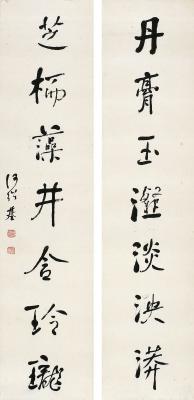 丹膏玉凝淡泱漭
芝栭藻井含玲瓏
何紹基